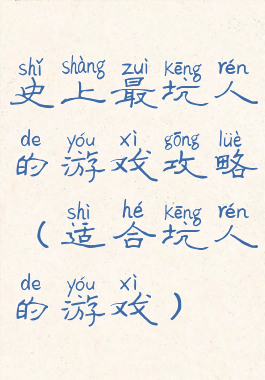 shǐ shàng zuì kēng rén
史上最坑人
de yóu xì gōng lüè
的游戏攻略
shì hé kēng rén
（适合坑人
de yóu xì
的游戏）